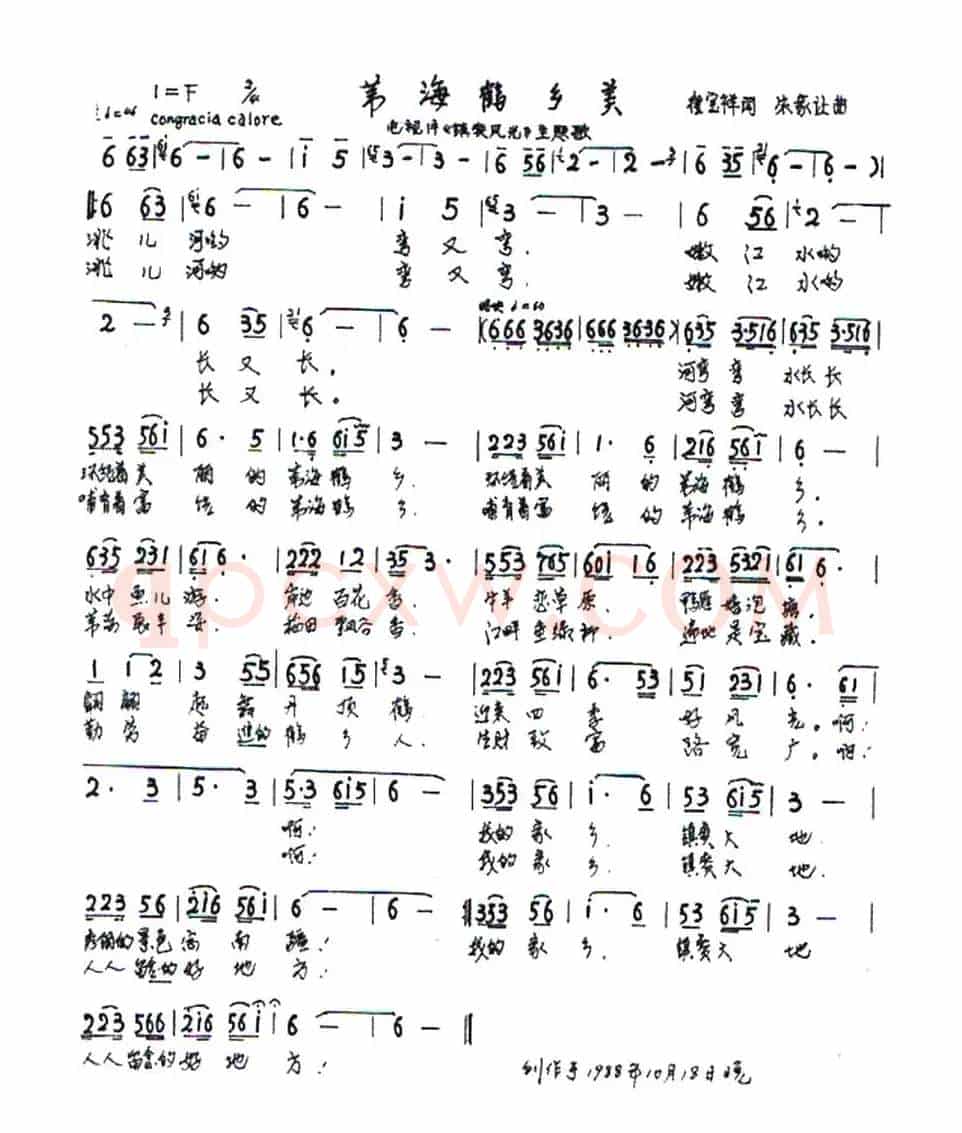 1=F 2/4 苇海鹤乡美 程宝祥词 朱家让曲
congracia calore 电视片《镇赉风光》主题歌
6 63 | 6 — | 6 — | i 5 | 3 — | 3 — | 6 56 | 2 — | 2 — | 6 35 | 6 — | 6 — )|
6 63 | 6 — | 6 — | i 5 | 3 — | 3 — | 6 56 | 2 — |
洮儿河哟 弯又弯. 嫩江水哟
洮儿河哟 弯又弯. 嫩江水哟
2 — | 6 35 | 6 — | 6 — |( 666 3636 | 666 3636 )| 635 3·516 | 635 3·516 |
长又长。 河弯弯 水长长
长又长。 河弯弯 水长长
553 56i | 6· 5 | 1·6 6i5 | 3 — | 223 56i | 1· 6 | 216 56i | 6 — |
环绕着美丽的苇海鹤乡. 环绕着美丽的苇海鹤乡.
哺育着富饶的苇海鹤乡. 哺育着富饶的苇海鹤乡.
635 231 | 61 6· | 222 12 | 35 3· | 553 765 | 601 16 | 223 5321 | 61 6· |
水中鱼儿游. 岸边百花香. 牛羊恋草原.
江畔鱼绿柳. 遍地是宝藏.
1 12 | 3 55 | 656 15 | 3 — | 223 56i | 6· 53 | 51 231 | 6· 61 |
翩翩起舞丹顶鹤. 迎来四季好风光。啊!
勤劳 的鹤乡人. 生财致富路宽广。啊!
2· 3 | 5· 3 | 5·3 6i5 | 6 — | 353 56 | i· 6 | 53 6i5 | 3 — |
啊! 我的家乡. 镇赉大地.
啊! 我的家乡. 镇赉大地.
223 56 | 2i6 56i | 6 — | 6 — :|| 353 56 | i· 6 | 53 6i5 | 3 — |
的景色 南疆! 我的家乡. 镇赉大地
人人留恋的好地方!
223 566 | 2i6 56i i | 6 — | 6 — ||
人人留恋的好地方! 创作于1988年10月18日晚
qpcxw.com